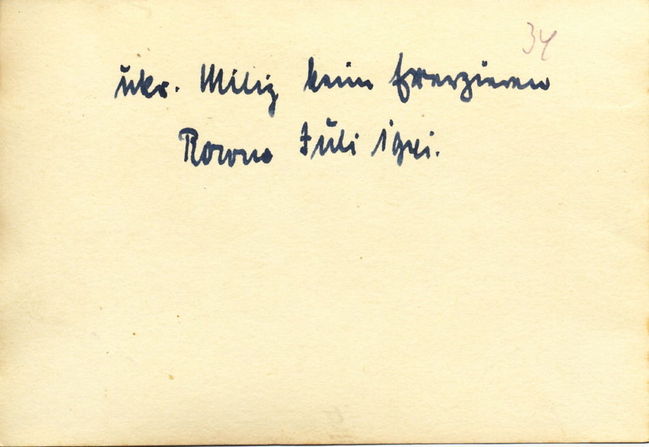 34
ukr. Miliz beim Exerzieren
Rowno Juli 1941.